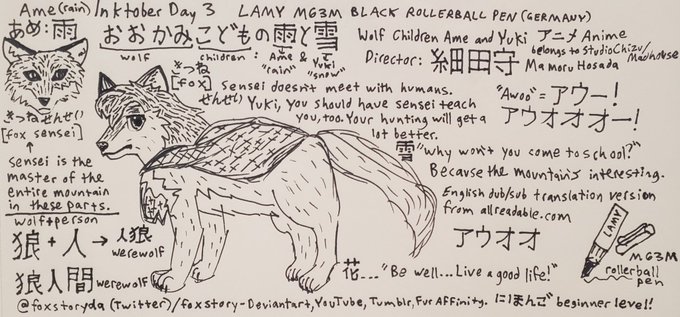 Ame(rain) Inktober Day 3 LAMY MG3M BLACK ROLLERBALL PEN (GERMANY)
あめ:雨
おおかみこどもの雨と雪
wolf children: Ame & Yuki
"rain" "snow"
Wolf Children Ame and Yuki アニメ Anime
belongs to Studio Chizu/Madhouse
Director: 細田守 Mamoru Hosada
きつね
[fox]
せんせい
Sensei doesn't meet with humans.
Yuki, you should have sensei teach
you, too. Your hunting will get a
lot better.
"Awoo" = アウー!
アウオオオー!
きつねせんせい
[fox sensei]
↑
Sensei is the
master of the
entire mountain
in these parts.
雪 "Why won't you come to school?"
Because the mountain's interesting.
English dub/sub translation version
from allreadable.com
アウオオ
wolf+person
狼+人→人狼
werewolf
狼人間 werewolf
花... "Be well... Live a good life!"
LAMY
MG3M
rollerball
pen
@foxstoryda (Twitter)/foxstory-Deviantart, YouTube, Tumblr, Fur Affinity. にほんご beginner level!